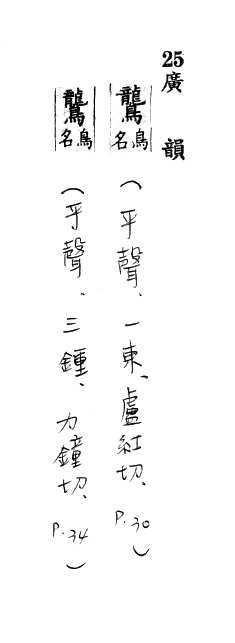 25廣韻
鸗鳥名(平聲、一東、盧紅切、P.30)
鸗鳥名(平聲、三鍾、力鐘切、P.34)